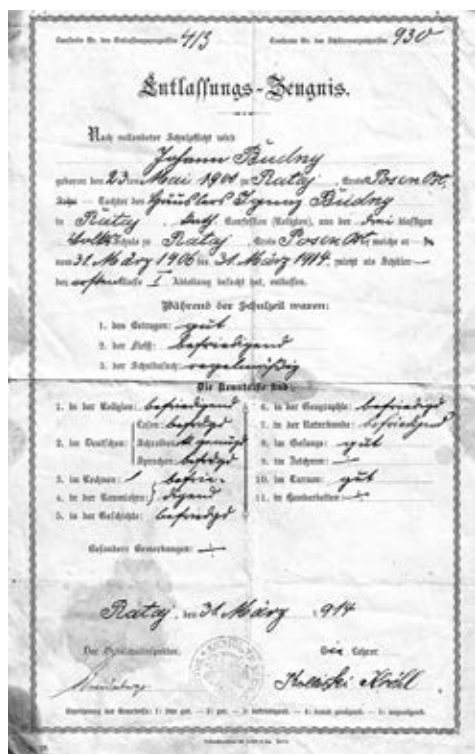 Laufende Nr. des Entlassungszeugnisses 413 Laufende Nr. des Schülerverzeichnisses 930
Entlassungs-Zeugnis.
Nach vollendeter Schulpflicht wird
Johann Budny
geboren den 23ten Mai 1900 zu Rataj, Kreis Posen Ost,
Sohn – Tochter des Häuslers Ignaz Budny
in Rataj, kath. Confession (Religion), aus der drei klassigen
Volks Schule zu Rataj, Kreis Posen Ost, welche er
vom 31. März 1906 bis 31. März 1914, zuletzt als Schüler
der ersten Klasse I Abteilung besucht hat, entlassen.
Während der Schulzeit waren:
1. das Betragen: gut
2. der Fleiß: befriedigend
3. der Schulbesuch: regelmäßig
Die Kenntnisse sind:
1. in der Religion: befriedigend
2. im Deutschen:
Lesen: befrdgd
Schreiben: genügd
Sprechen: befrdgd
3. im Rechnen: befrie-
4. in der Raumlehre: digend
5. in der Geschichte: befriedgd
6. in der Geographie: befriedgd
7. in der Naturkunde: befriedigend
8. im Gesange: gut
9. im Zeichnen: —
10. im Turnen: gut
11. in Handarbeiten: —
Besondere Bemerkungen: —
Rataj, den 31. März 1914
Der Ortsschulinspektor. Die Lehrer